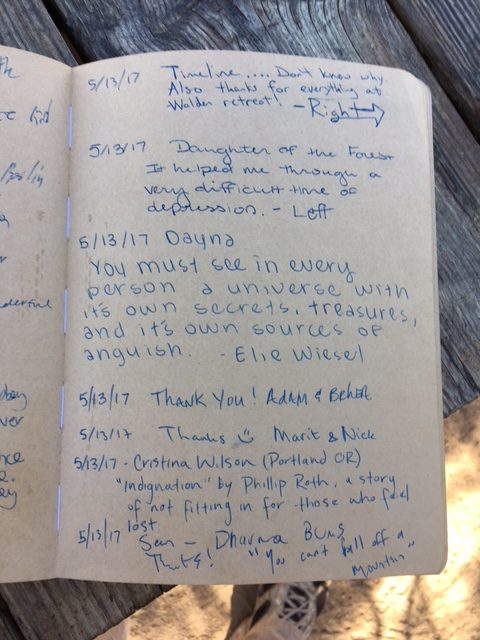 5/13/17 Timeline .... Don't know why.
Also thanks for everything at
Walden retreat! - Right
5/13/17 Daughter of the Forest
It helped me through a
very difficult time of
depression. - Left
5/13/17 Dayna
You must see in every
person a universe with
it's own secrets, treasures,
and it's own sources of
anguish. - Elie Wiesel
5/13/17 Thank You! Adam &
5/13/17 Thanks Marit & Nick
5/13/17 - Cristina Wilson (Portland OR)
"Indignation" by Phillip Roth, a story
of not fitting in for those who feel
lost
5/13/17 Sean - Dharma Bums
Thanks! "You can't fall off a
Mountain"